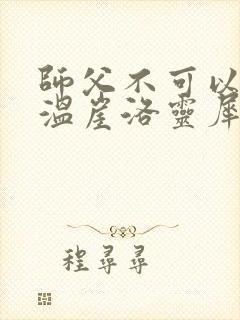 師父不可以
溫崖洛靈犀
程尋尋